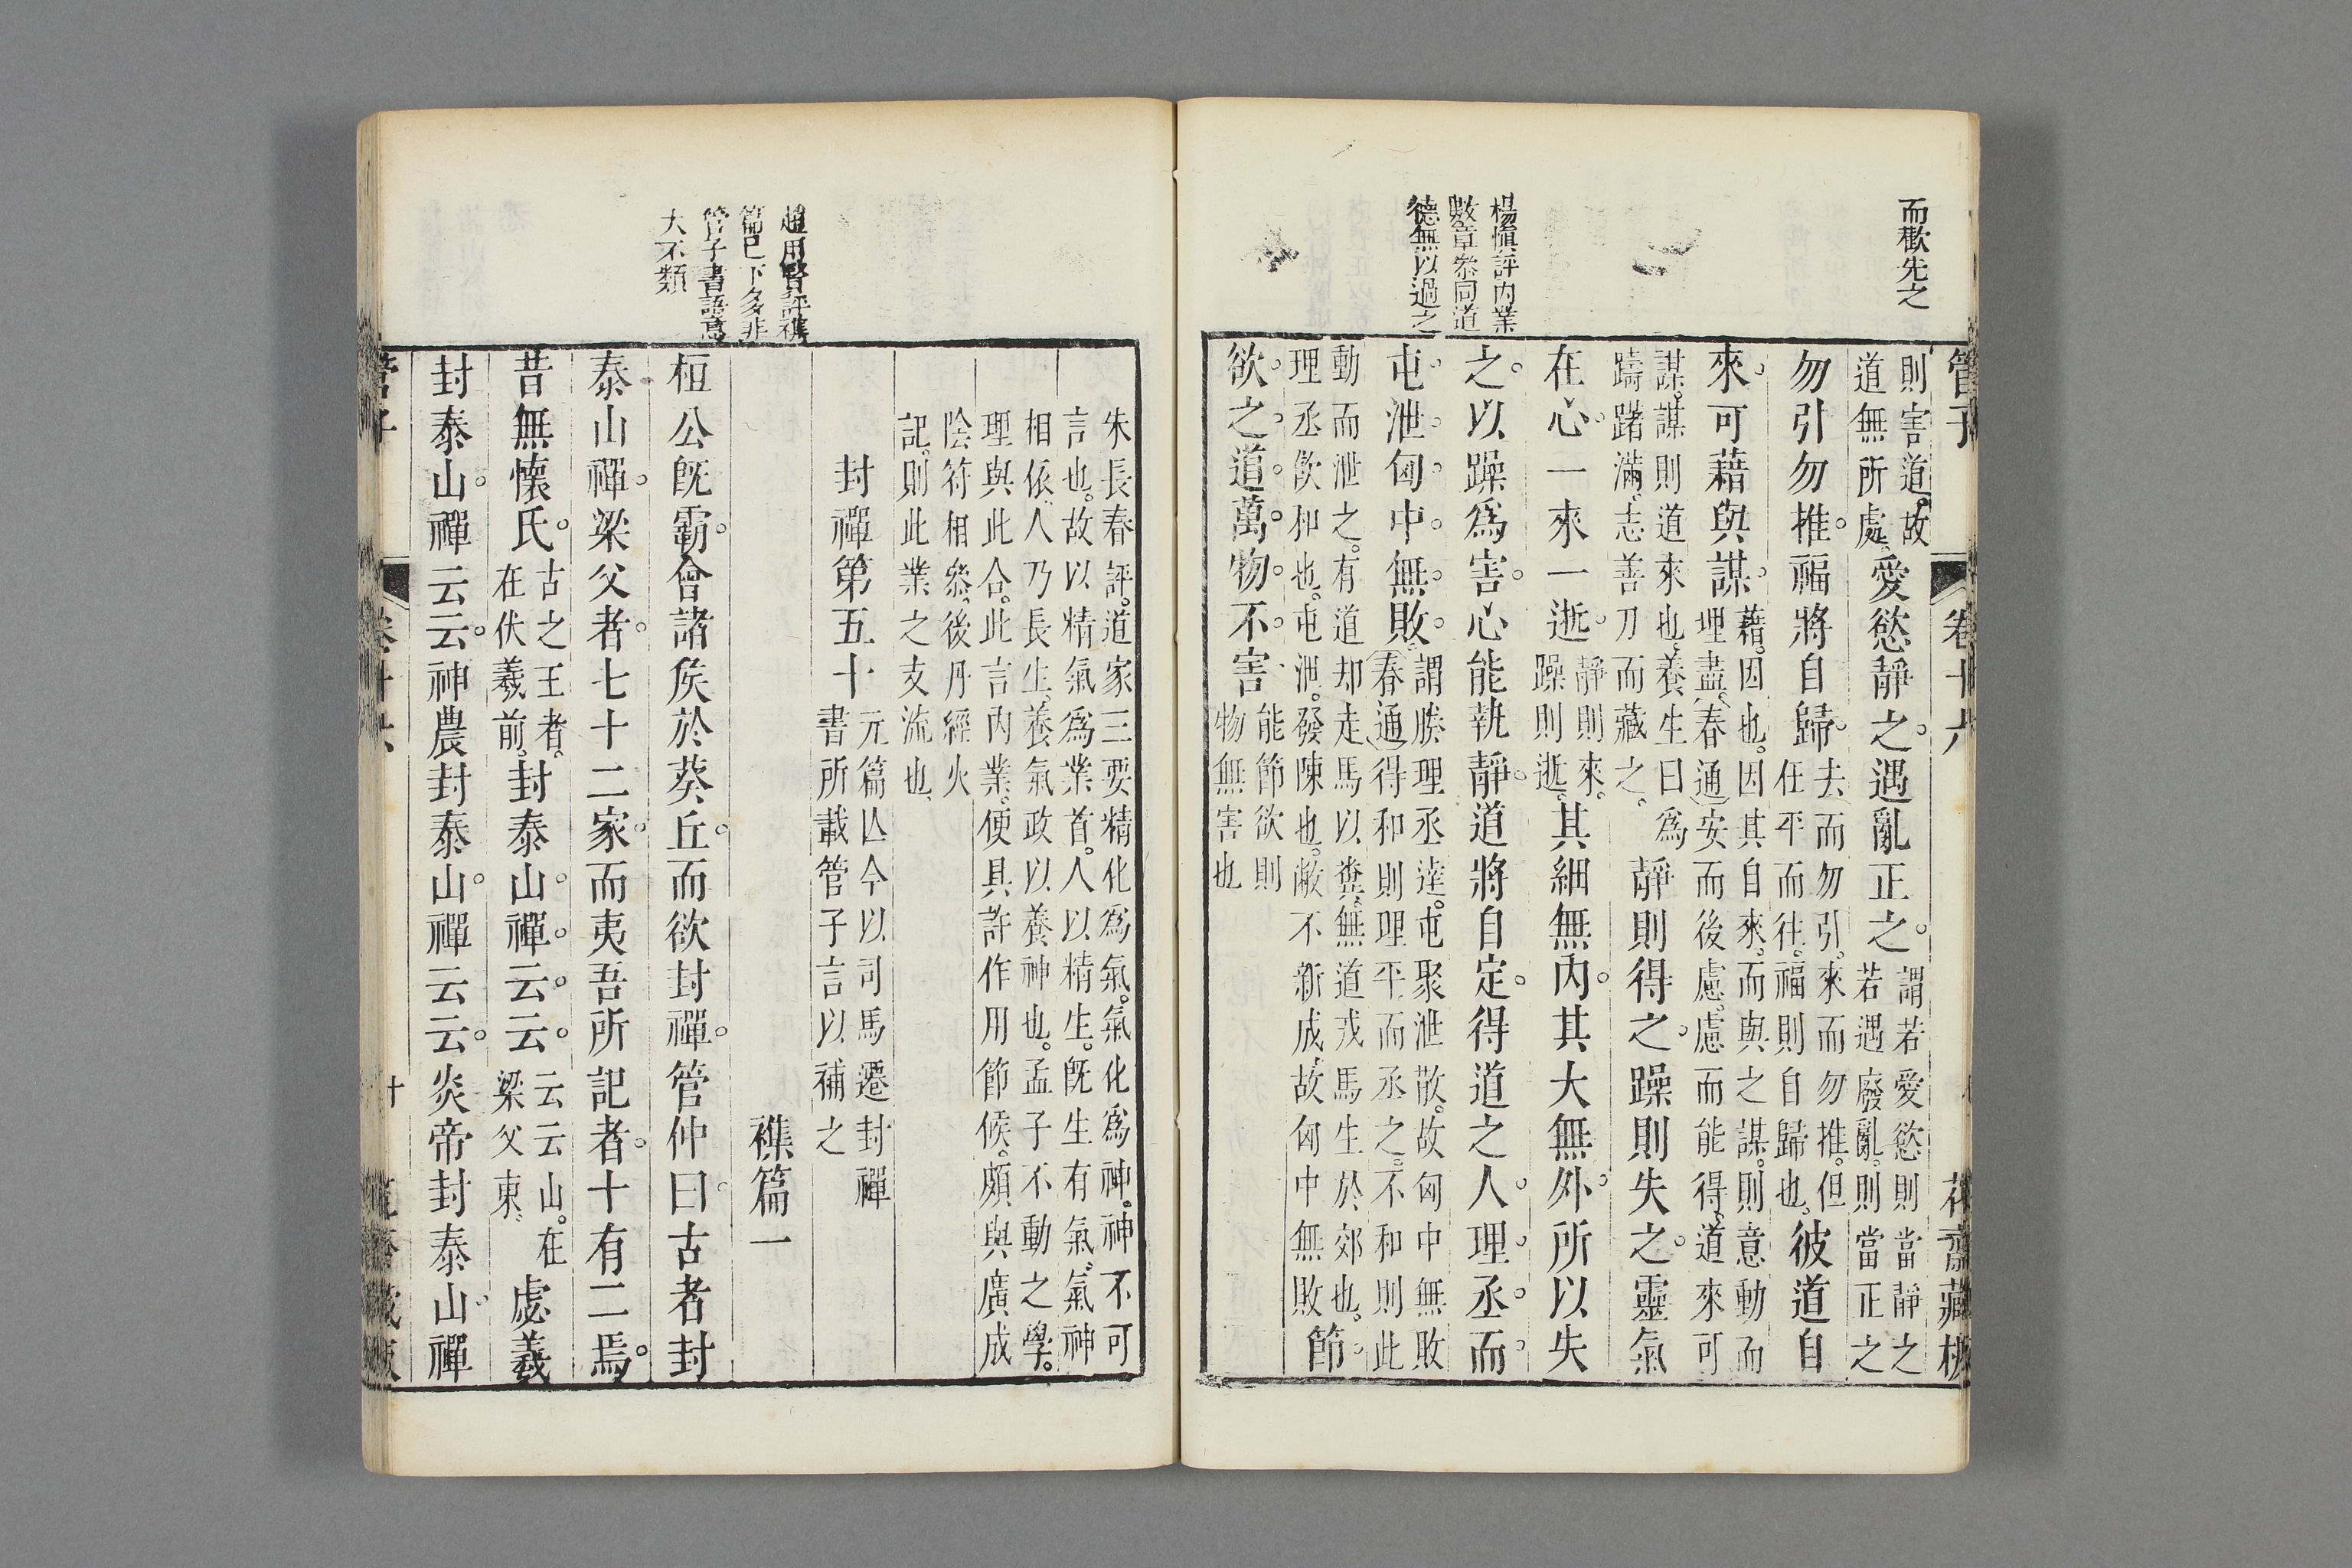 而歡先之
楊愼評內業
數章叅同道
德無以過之
管子
卷十六
花齋藏板
則害道。故
道無所處。
愛慾靜之。遇亂正之。
謂若愛慾則當靜之
若遇廢亂。則當正之
勿引勿推。福將自歸。
去而勿引。來而勿推。但
任平而往。福則自歸也。
彼道自
來。可藉與謀。
藉。因也。因其自來。而與之謀。則意動而
理盡。春通安而後慮。慮而能得。道來可
謀。謀則道來也。養生曰爲
躊躇滿志善刀而藏之。
靜則得之。躁則失之。靈氣
在心。一來一逝。
靜則來。
躁則逝。
其細無內。其大無外。所以失
之。以躁爲害。心能執靜。道將自定。得道之人。理丞而
屯泄。匈中無敗。
謂勝理丞達。屯聚泄散。故匈中無敗
春通得和則理平而丞之。不和則此
動而泄之。有道却走馬以糞。無道戎馬生於郊也。
理丞飲和也。屯泄。發陳也。敝不新成。故匈中無敗
節
欲之道。萬物不害。
能節欲則
物無害也
趙用賢評襍
篇已下多非
管子書語意
大不類
朱長春評。道家三要精化爲氣。氣化爲神。神不可
言也。故以精氣爲業首。人以精生。旣生有氣。氣神
相依。人乃長生。養氣政以養神也。孟子不動之學。
理與此合。此言內業。便具許作用節候。頗與廣成
陰符相叅。後丹經火
記。則此業之支流也。
封禪第五十
元篇亾今以司馬遷封禪
書所載管子言以補之
襍篇一
桓公旣霸。會諸矦於葵丘。而欲封禪。管仲曰。古者封
泰山禪梁父者。七十二家。而夷吾所記者。十有二焉。
昔無懷氏。
古之王者。
在伏羲前。
封泰山。禪云云。
云云山。在
梁父東。
虙羲
封泰山。禪云云。神農封泰山。禪云云。炎帝封泰山。禪
管子
卷十六
十